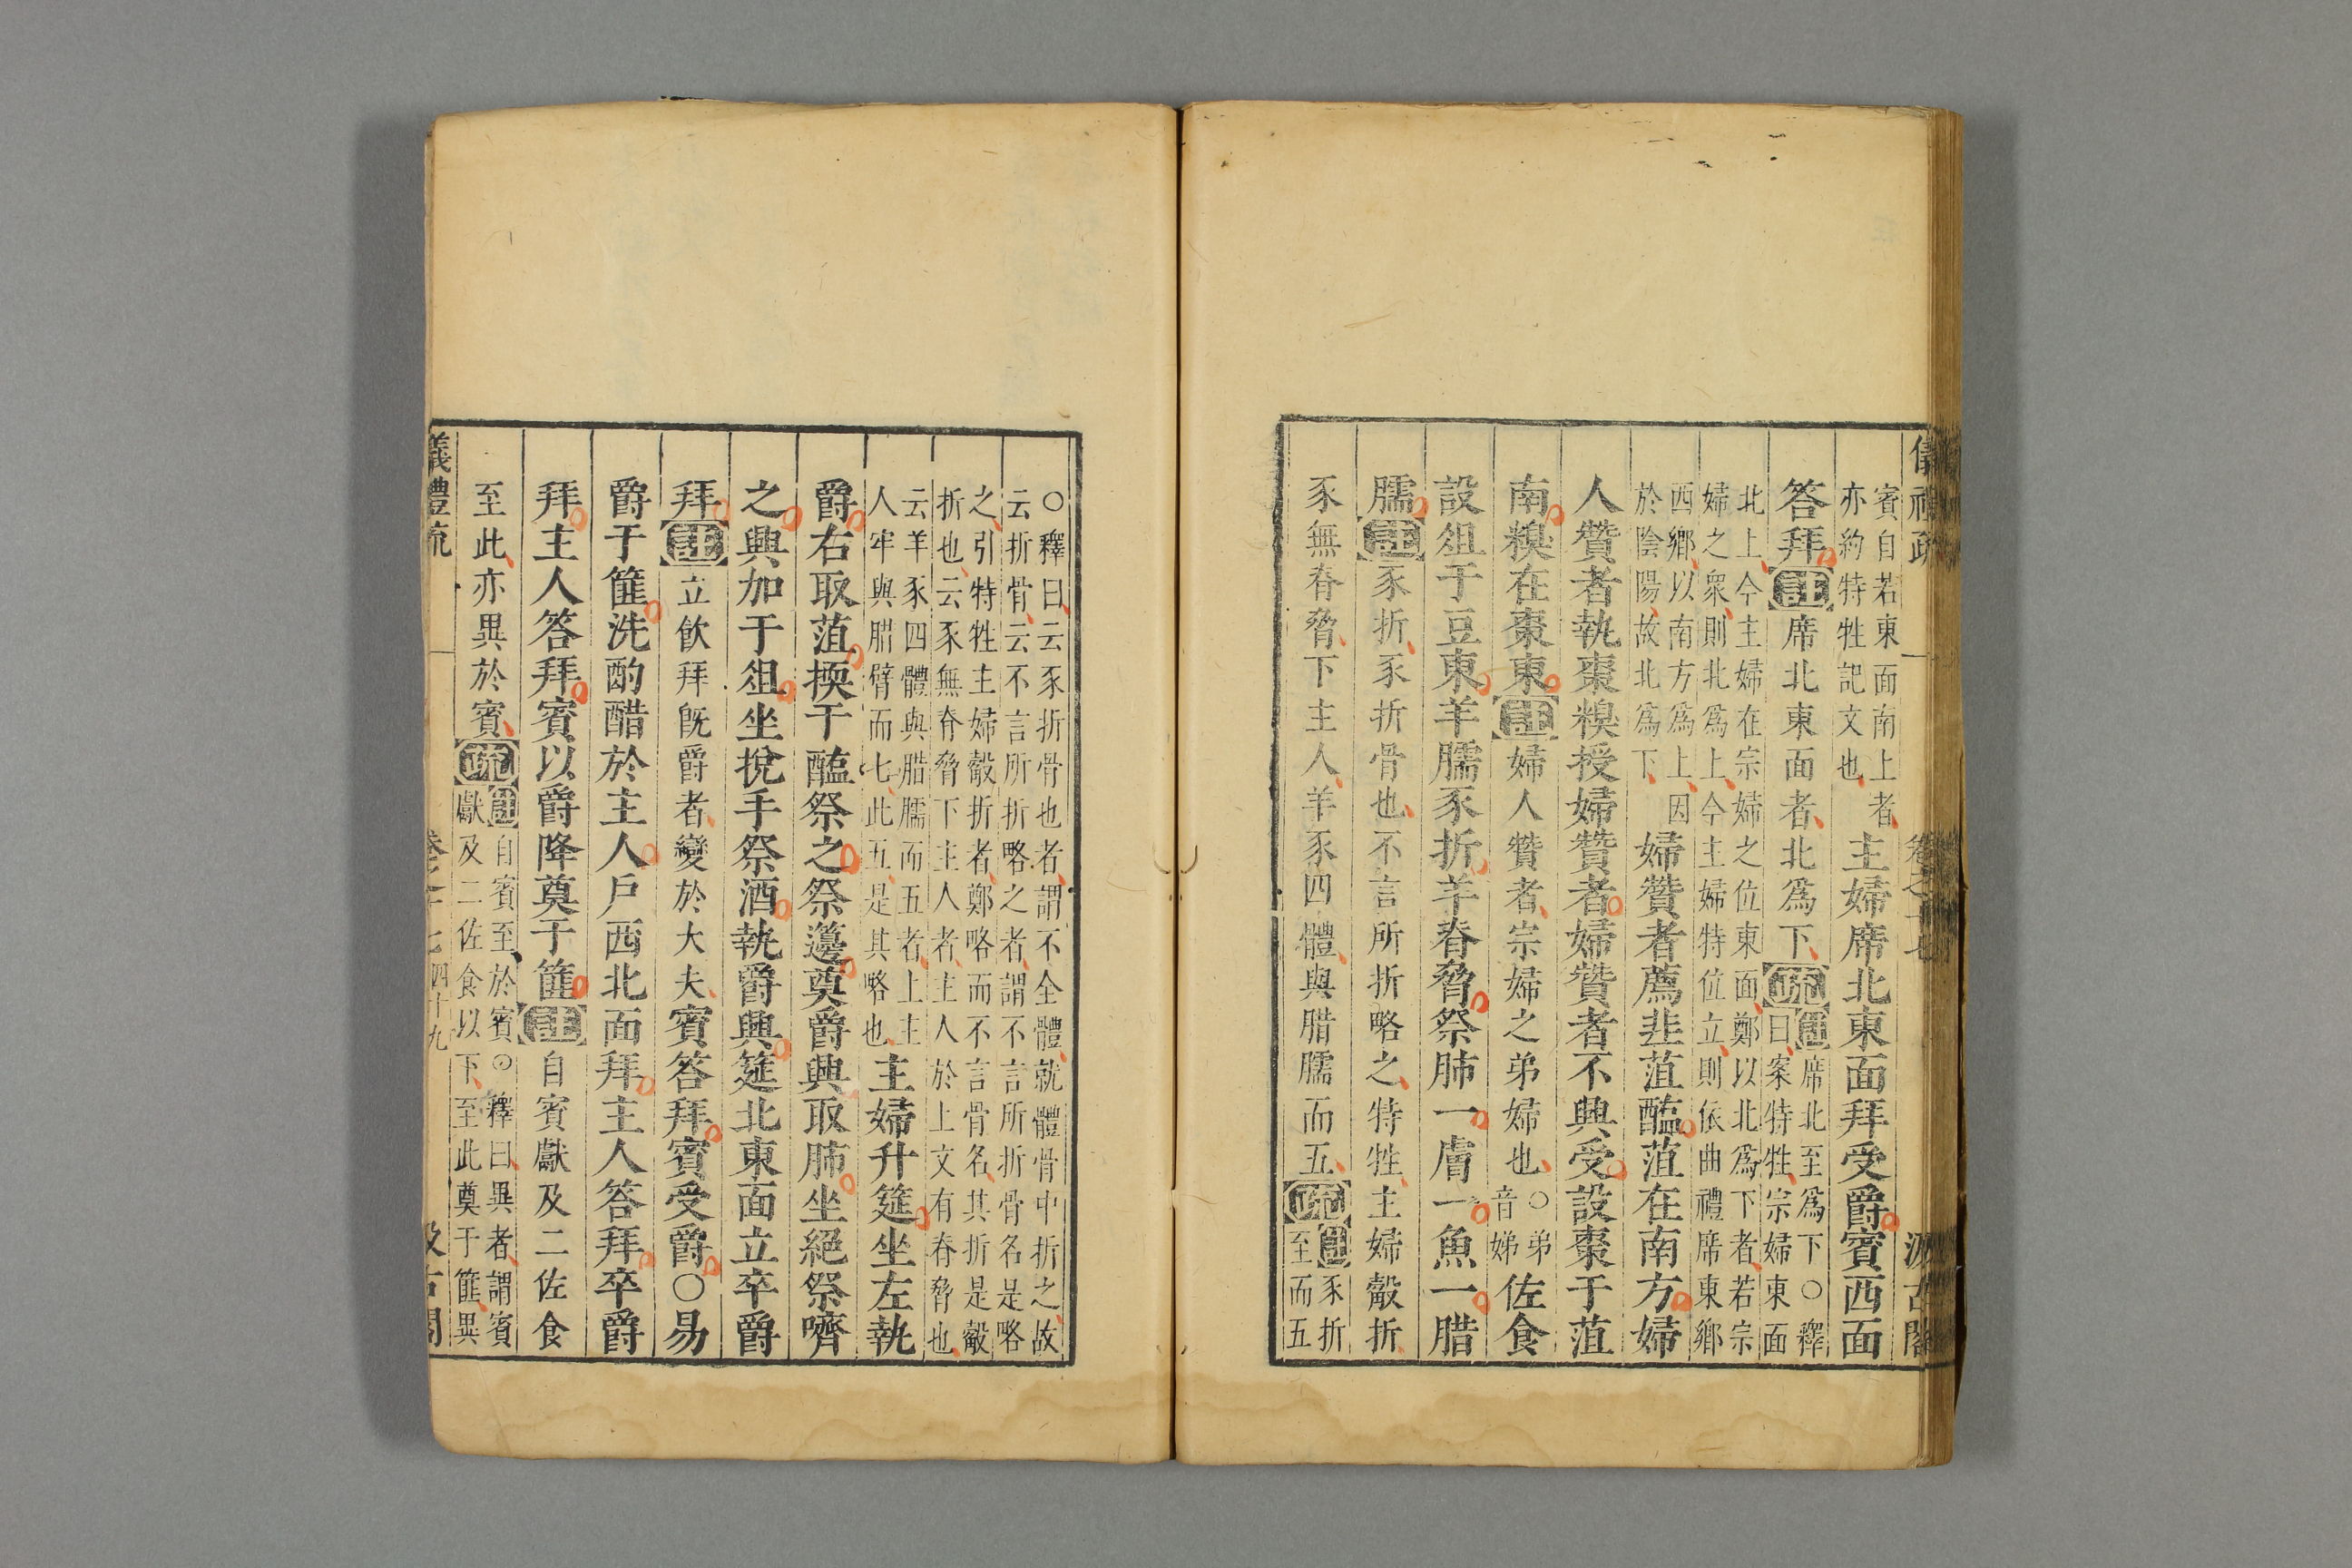 儀禮疏 卷之十七 汲古閣
賓自若東面南上者亦約特牲記文也主婦席北東面拜受爵賓西面
答拜註席北東面者北爲下疏註席北至爲下○釋曰案特牲宗婦東面
北上今主婦在宗婦之位東面鄭以北爲下者若宗
婦之衆則北爲上今主婦特位立則依曲禮席東鄉
西鄉以南方爲上因於陰陽故北爲下婦贊者薦韭菹醢菹在南方婦
人贊者執棗糗授婦贊者婦贊者不興受設棗于菹
南糗在棗東註婦人贊者宗婦之弟婦也○弟音娣佐食
設俎于豆東羊臑豕折羊脊脅祭肺一膚一魚一腊
臑註豕折豕折骨也不言所折略之特牲主婦觳折
豕無脊脅下主人羊豕四體與腊臑而五疏註豕折至而五
○釋曰云豕折骨也者謂不全體就體骨中折之故
云折骨云不言所折略之者謂不言所折骨名是略
之引特牲主婦觳折者鄭略而不言骨名其折是觳
折也云豕無脊脅下主人者主人於上文有脊脅也
云羊豕四體與腊臑而五者上主人牢與腊臂而七此五是其略也主婦升筵坐左執
爵右取菹㨎于醢祭之祭籩奠爵興取肺坐絕祭嚌
之興加于俎坐挩手祭酒執爵興筵北東面立卒爵
拜註立飲拜既爵者變於大夫賓答拜賓受爵○易
爵于篚洗酌醋於主人戶西北面拜主人答拜卒爵
拜主人答拜賓以爵降奠于篚註自賓獻及二佐食
至此亦異於賓疏註自賓至於賓○釋曰異者謂賓獻及二佐食以下至此奠于篚異
儀禮疏 卷之十七 四十九 汲古閣